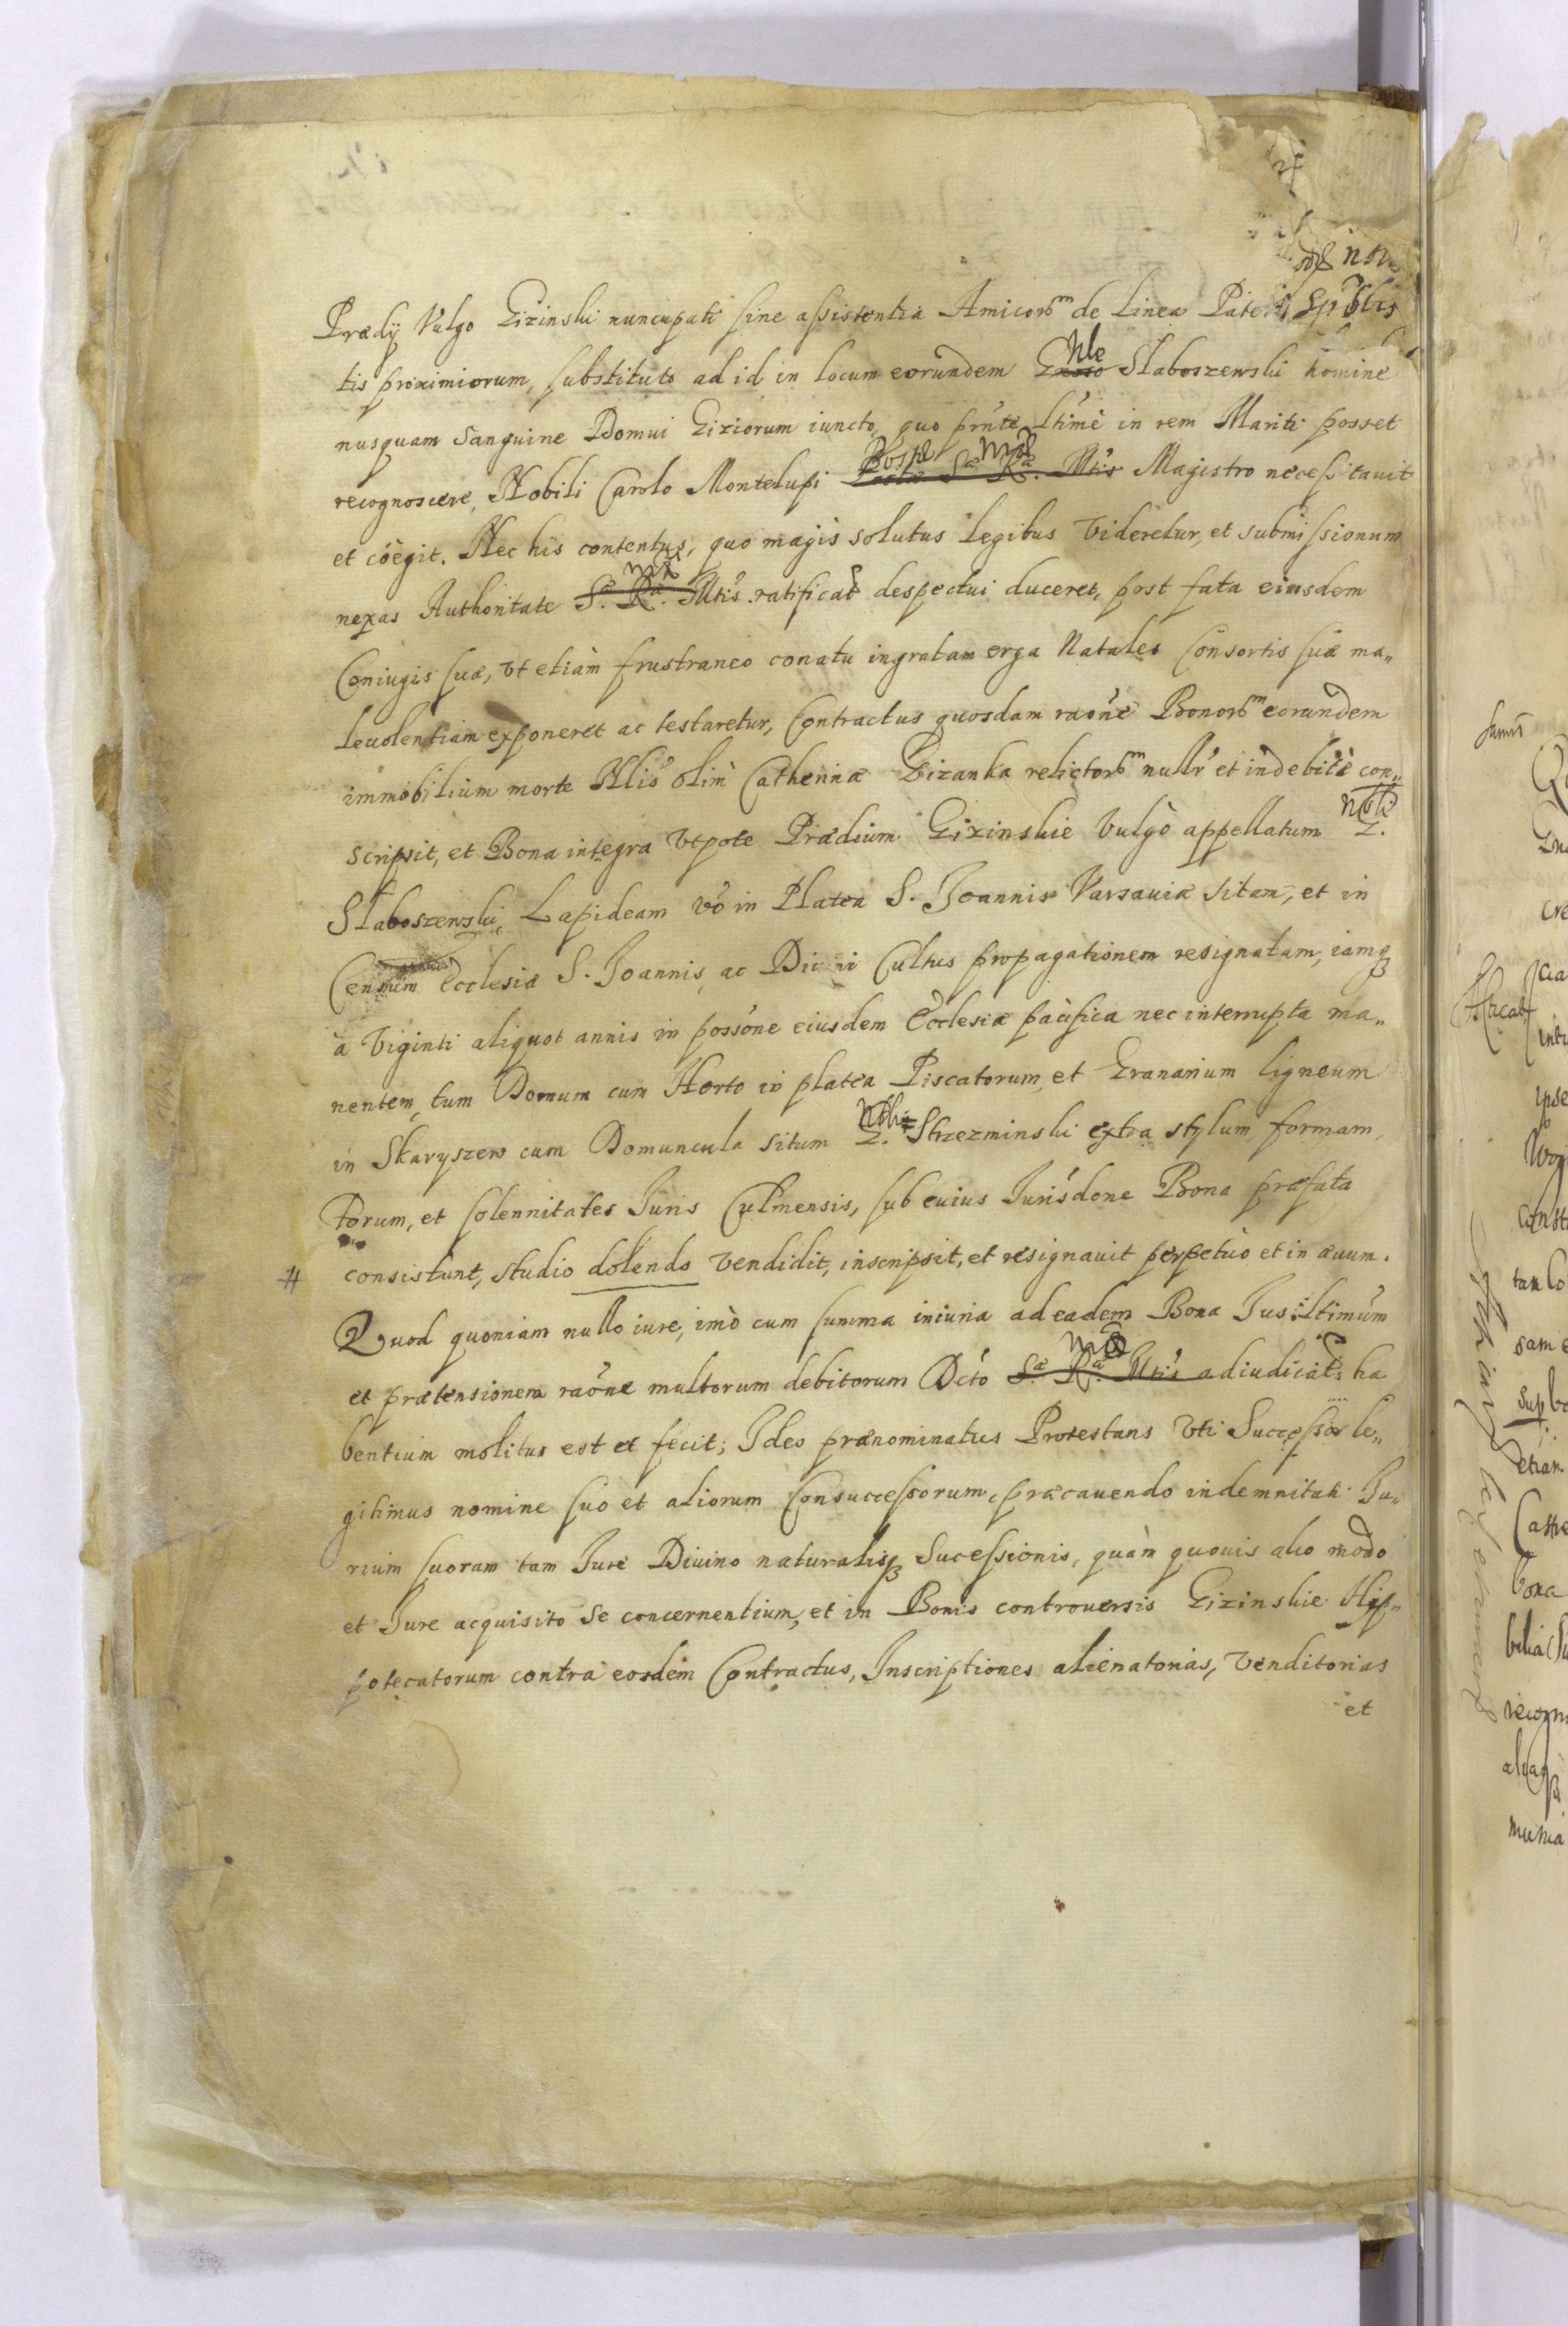 Prædij Vulgo Gizinski nuncupati sine assistentia Amicorm de Linea Patern
tis proximiorum, substituto ad id in locum eorundem Nle Slaboszewski homine
nusquam Sanguine Domui Giziorum iuncto, quo prnte ltime in rem Mariti posset
recognoscere, Nobili Carolo Montelupi Postæ Sæ Ræ. Mtis Magistro necessitauit
et coegit. Nec his contentus, quo magis solutus legibus Videretur, et submissionum
nexas Authoritate Sæ. Ræ. Mtis ratificat despectui duceret, post fata eiusdem
Coniugis suæ, Vt etiam frustraneo conatu ingratam erga Natales Consortis suæ ma„
leuolentiam exponeret ac testaretur, Contractus quosdam raone Bonorm eorundem
immobilium morte Nlis olim Catherinæ Gizanka relictorm nullr et indebite con„
scripsit, et Bona integra Vtpote Prædium Gizinskie Vulgo appellatum Nbli G.
Slaboszewski, Lapideam vo in Platea S. Joannis Varsauiæ sitam, et in
Censum Ecclesiæ S. Joannis, ac Diuini Cultus propagationem resignatam, iamq
a Viginti aliquot annis in possone eiusdem Ecclesiæ pacifica nec interrupta ma„
nentem, tum Domum cum Horto in platea Piscatorum, et Granarium ligneum
in Skaryszew cum Domuncula situm Nbli G. Strzezminski extra stylum, formam,
Forum, et solennitates Juris Culmensis, sub cuius Jurisdone Bona præfata
# consistunt, studio dolendo Vendidit, inscripsit, et resignauit perpetuo et in æuum.
Quod quoniam nullo iure, imo cum summa iniuria ad eadem Bona Jus ltimum
et prætensionem raone multorum debitorum Dcto Sæ Ræ. Mtis adiudicat ha
bentium molitus est et fecit; Ideo prænominatus Protestans Vti Successor le„
gitimus nomine suo et aliorum Consuccessorum, præcauendo indemnitati Ju„
rium suorum tam Jure Diuino naturalisq Sucessionis, quàm quouis alio modo
et Jure acquisito se concernentium, et in Bonis controuersis Gizinskie Hip„
potecatorum contra eosdem Contractus, Inscriptiones alienatorias, Venditorias
et